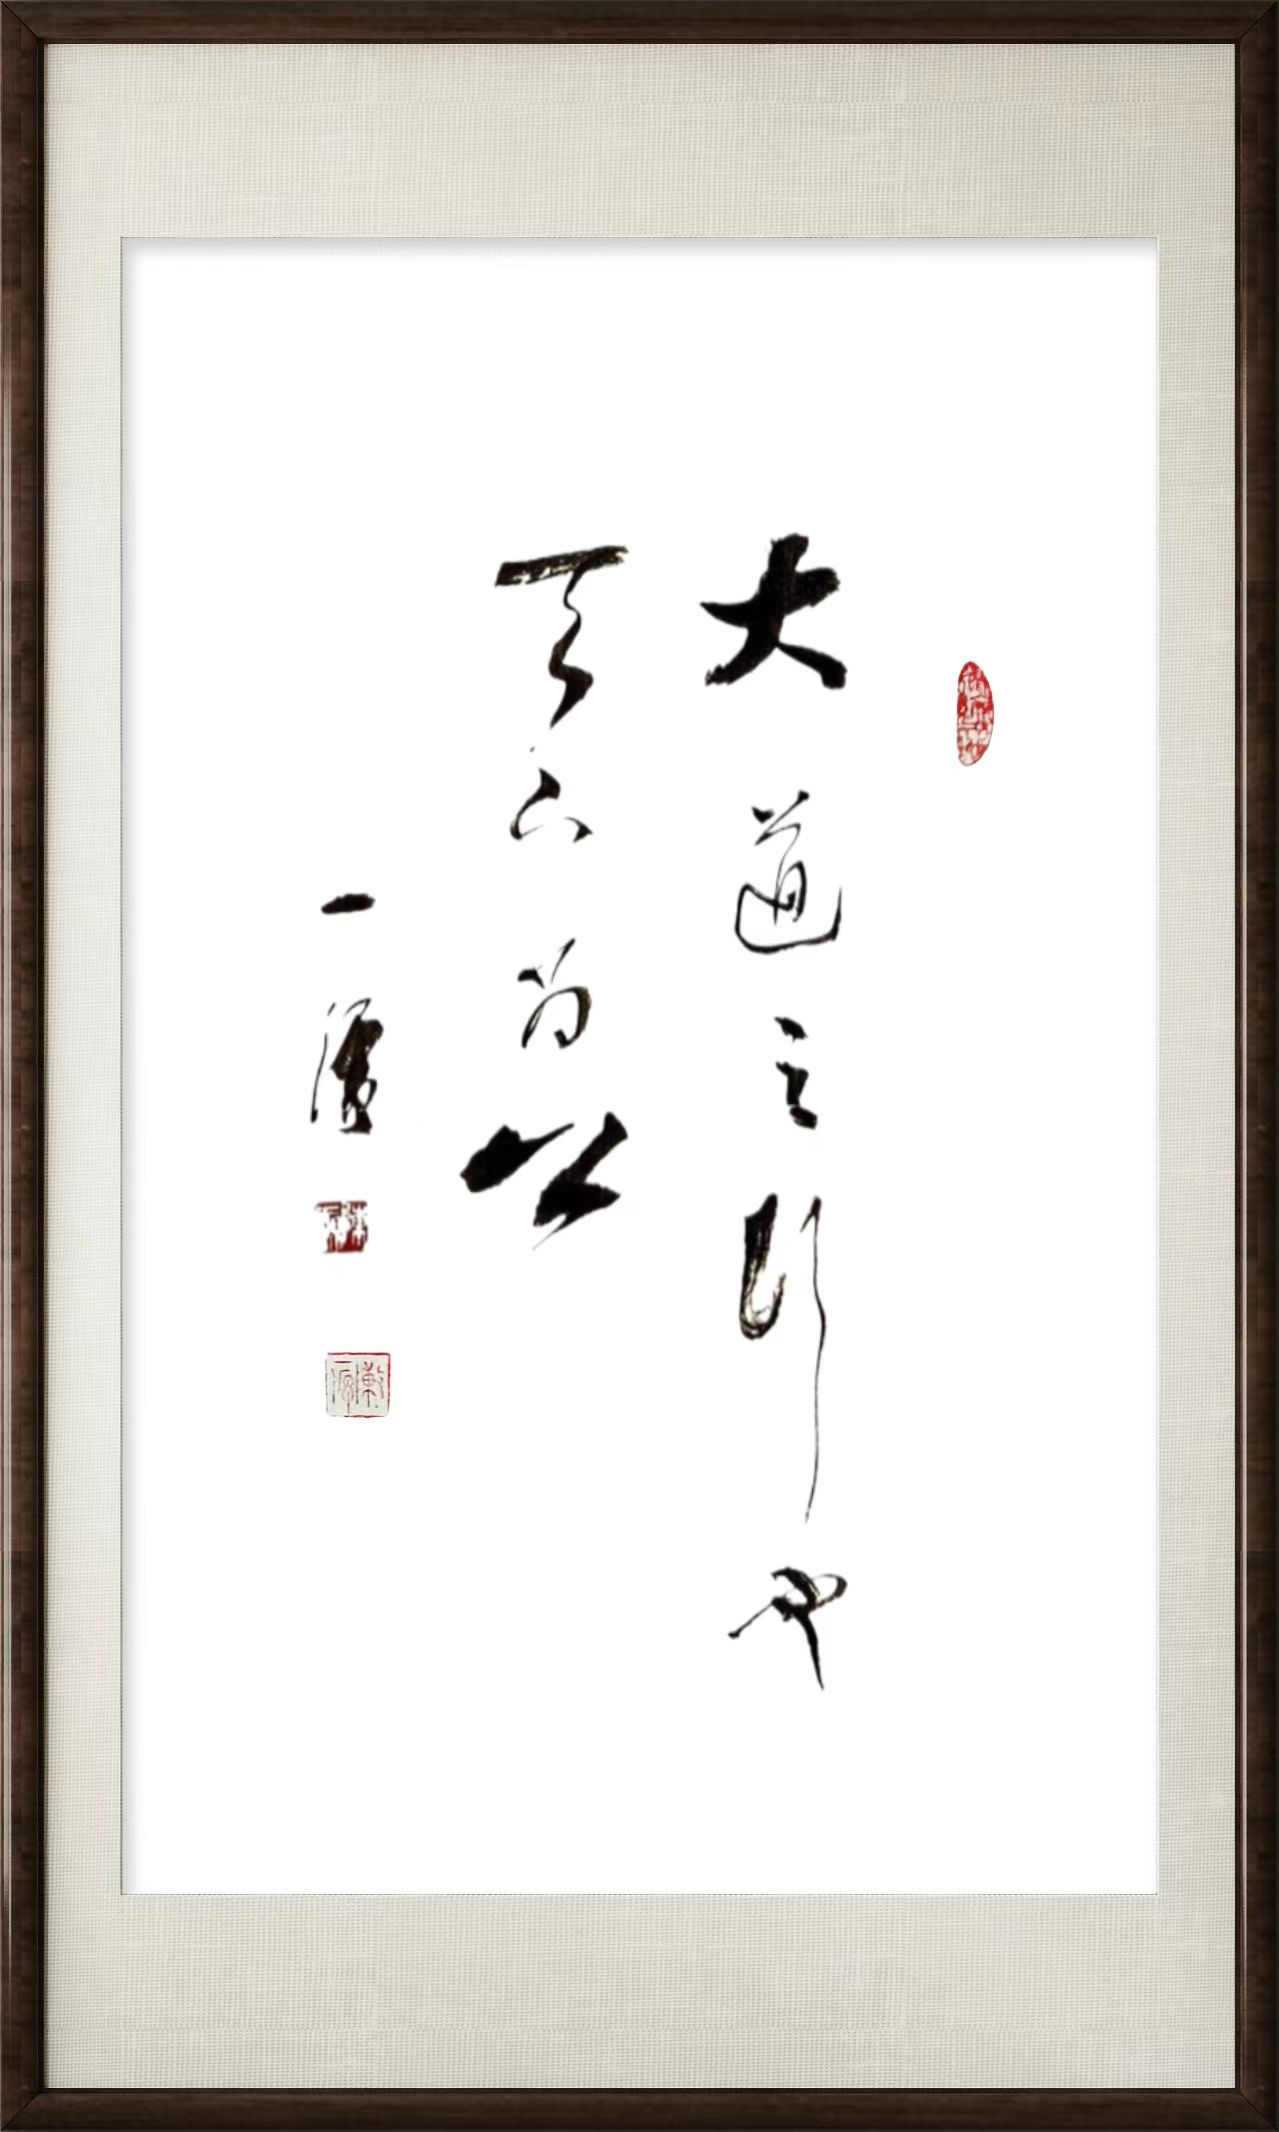 大道之行也
天下为公
一